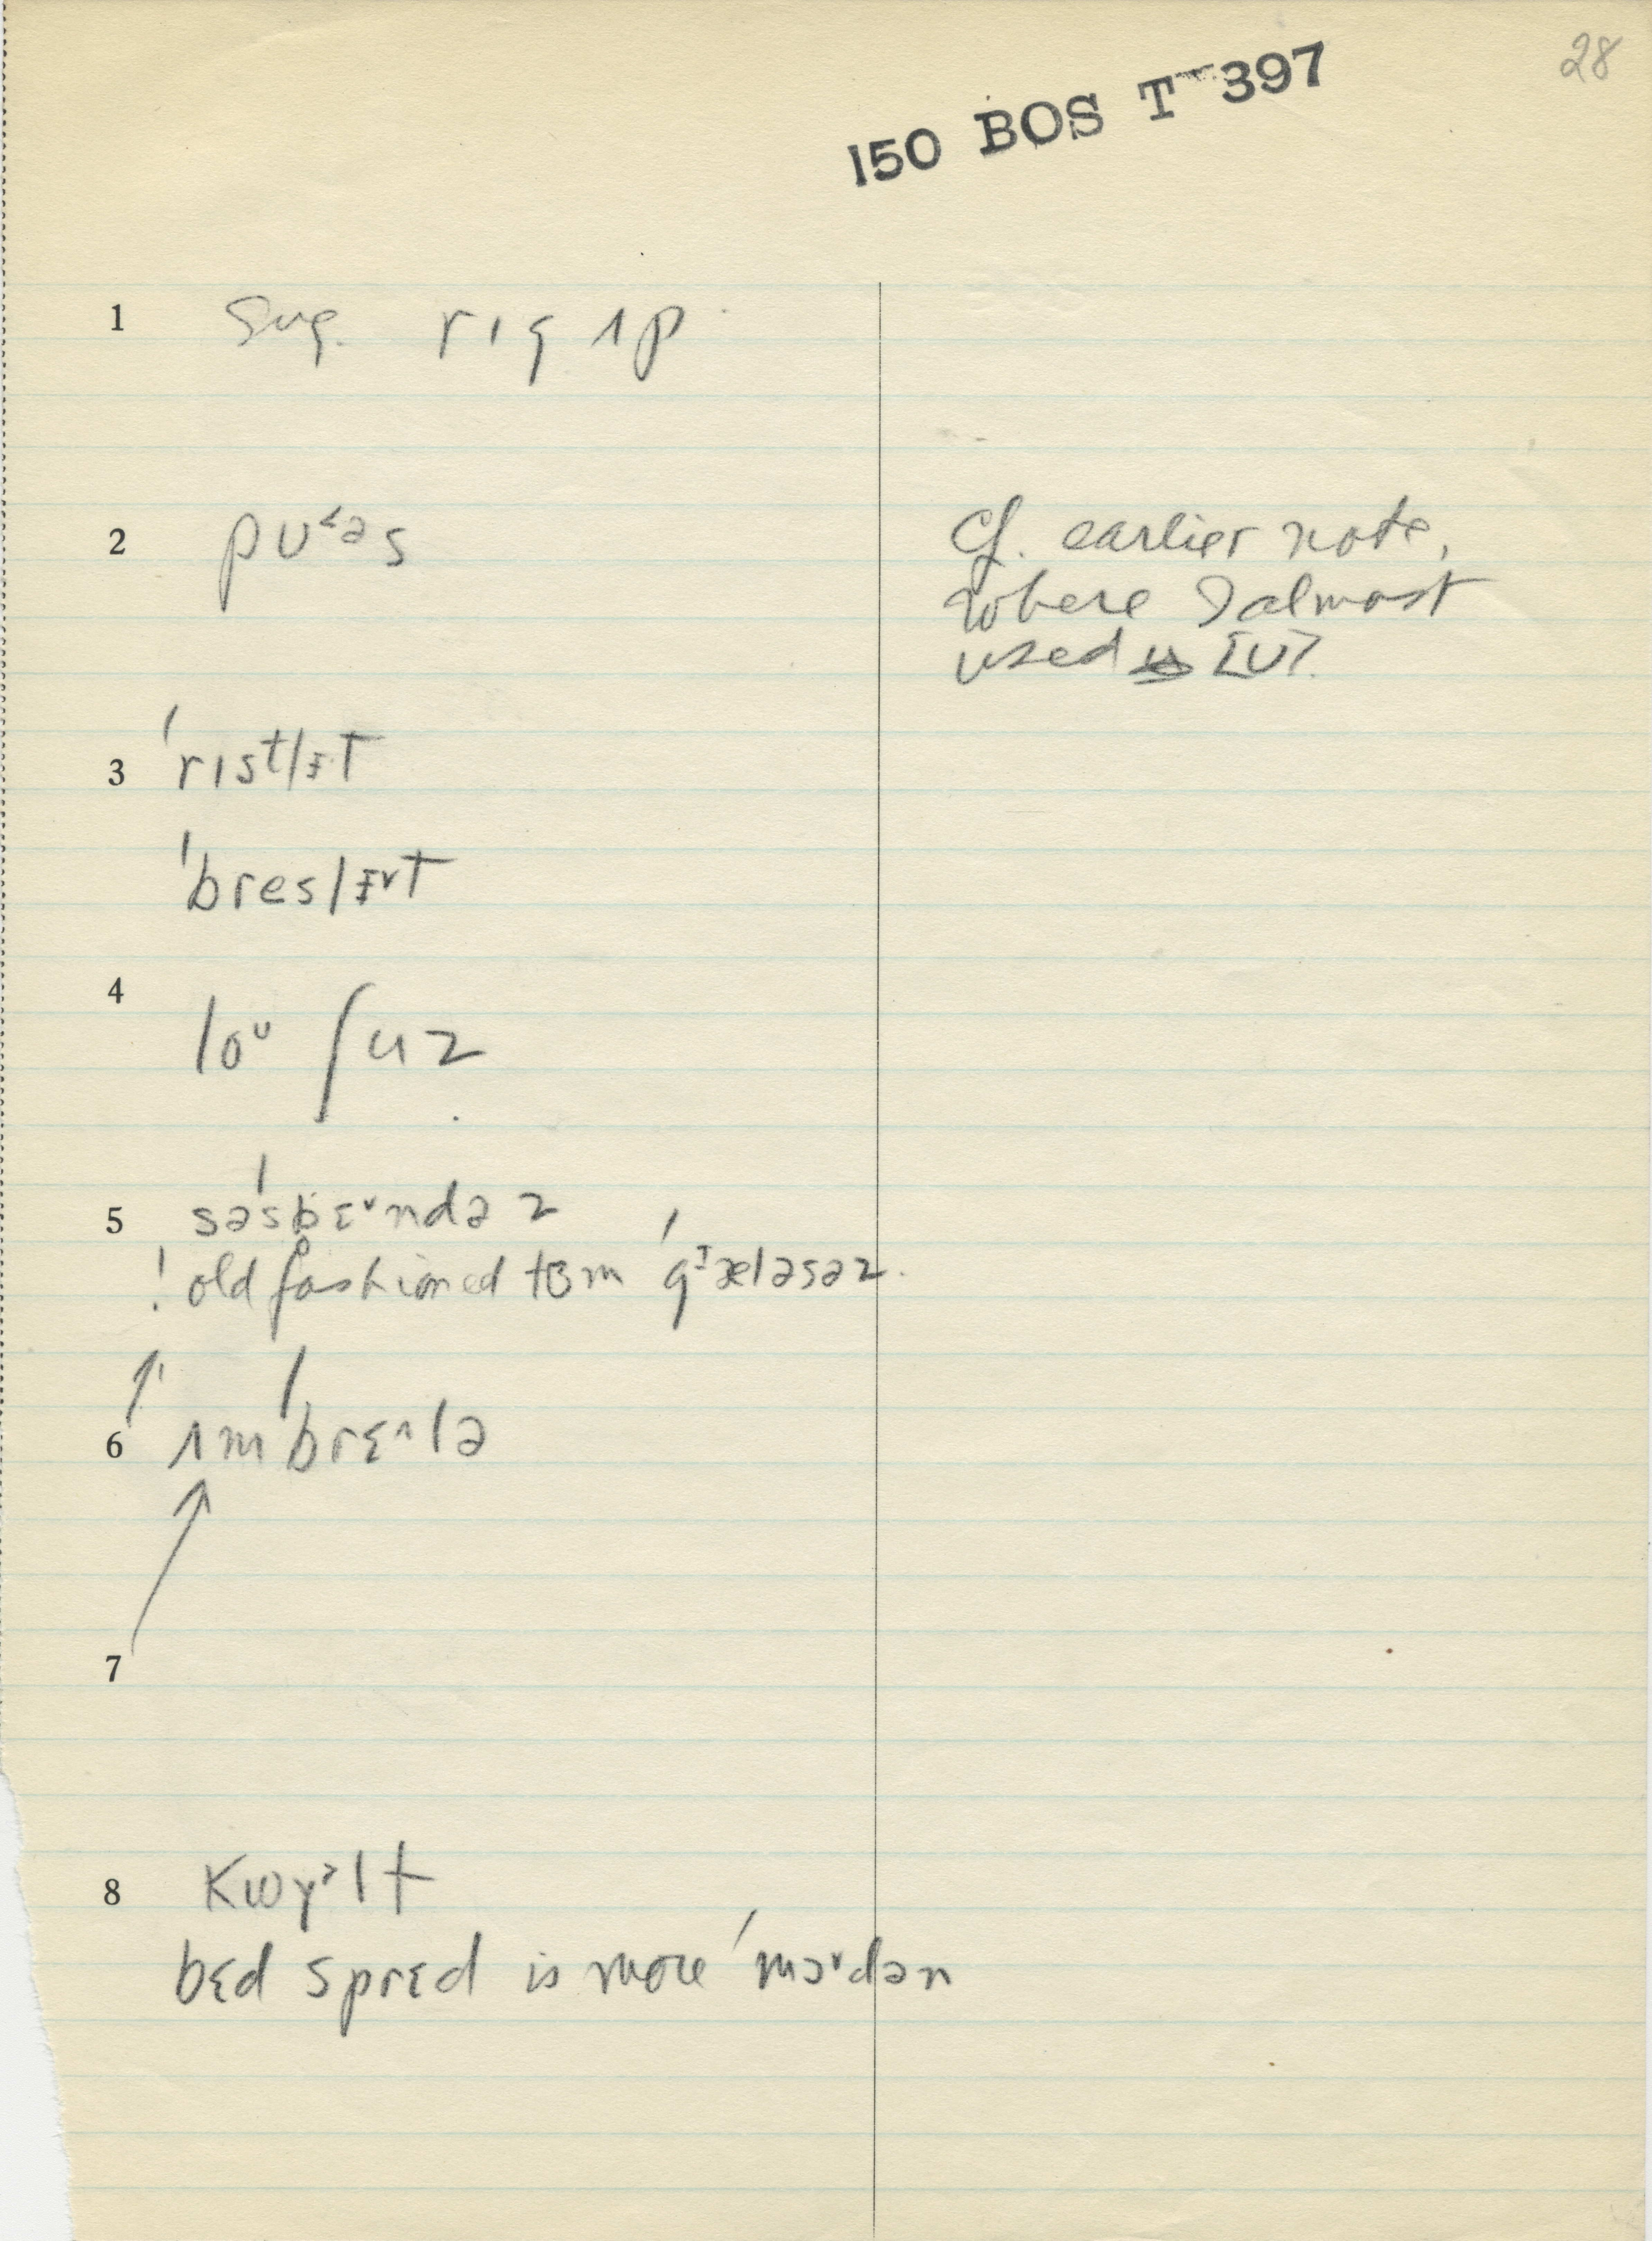 28
150 BOS T 397
1 Sug. rɪg ʌp
2 pʊ˂əs
Cf. earlier note,
where I almost
used [ʊ].
3 ˈrɪstlɪt
ˈbreslɪ˅t
4 loᶷ ʃuz
5 səˈspɛ˅ndəz
! old fashioned tɜm ˈgᶦæləsəz.
6 ʌmˈbrɛ^lə
7
8 Kwɣ˃lt
bɛd sprɛd is more ˈmɔ˅dən